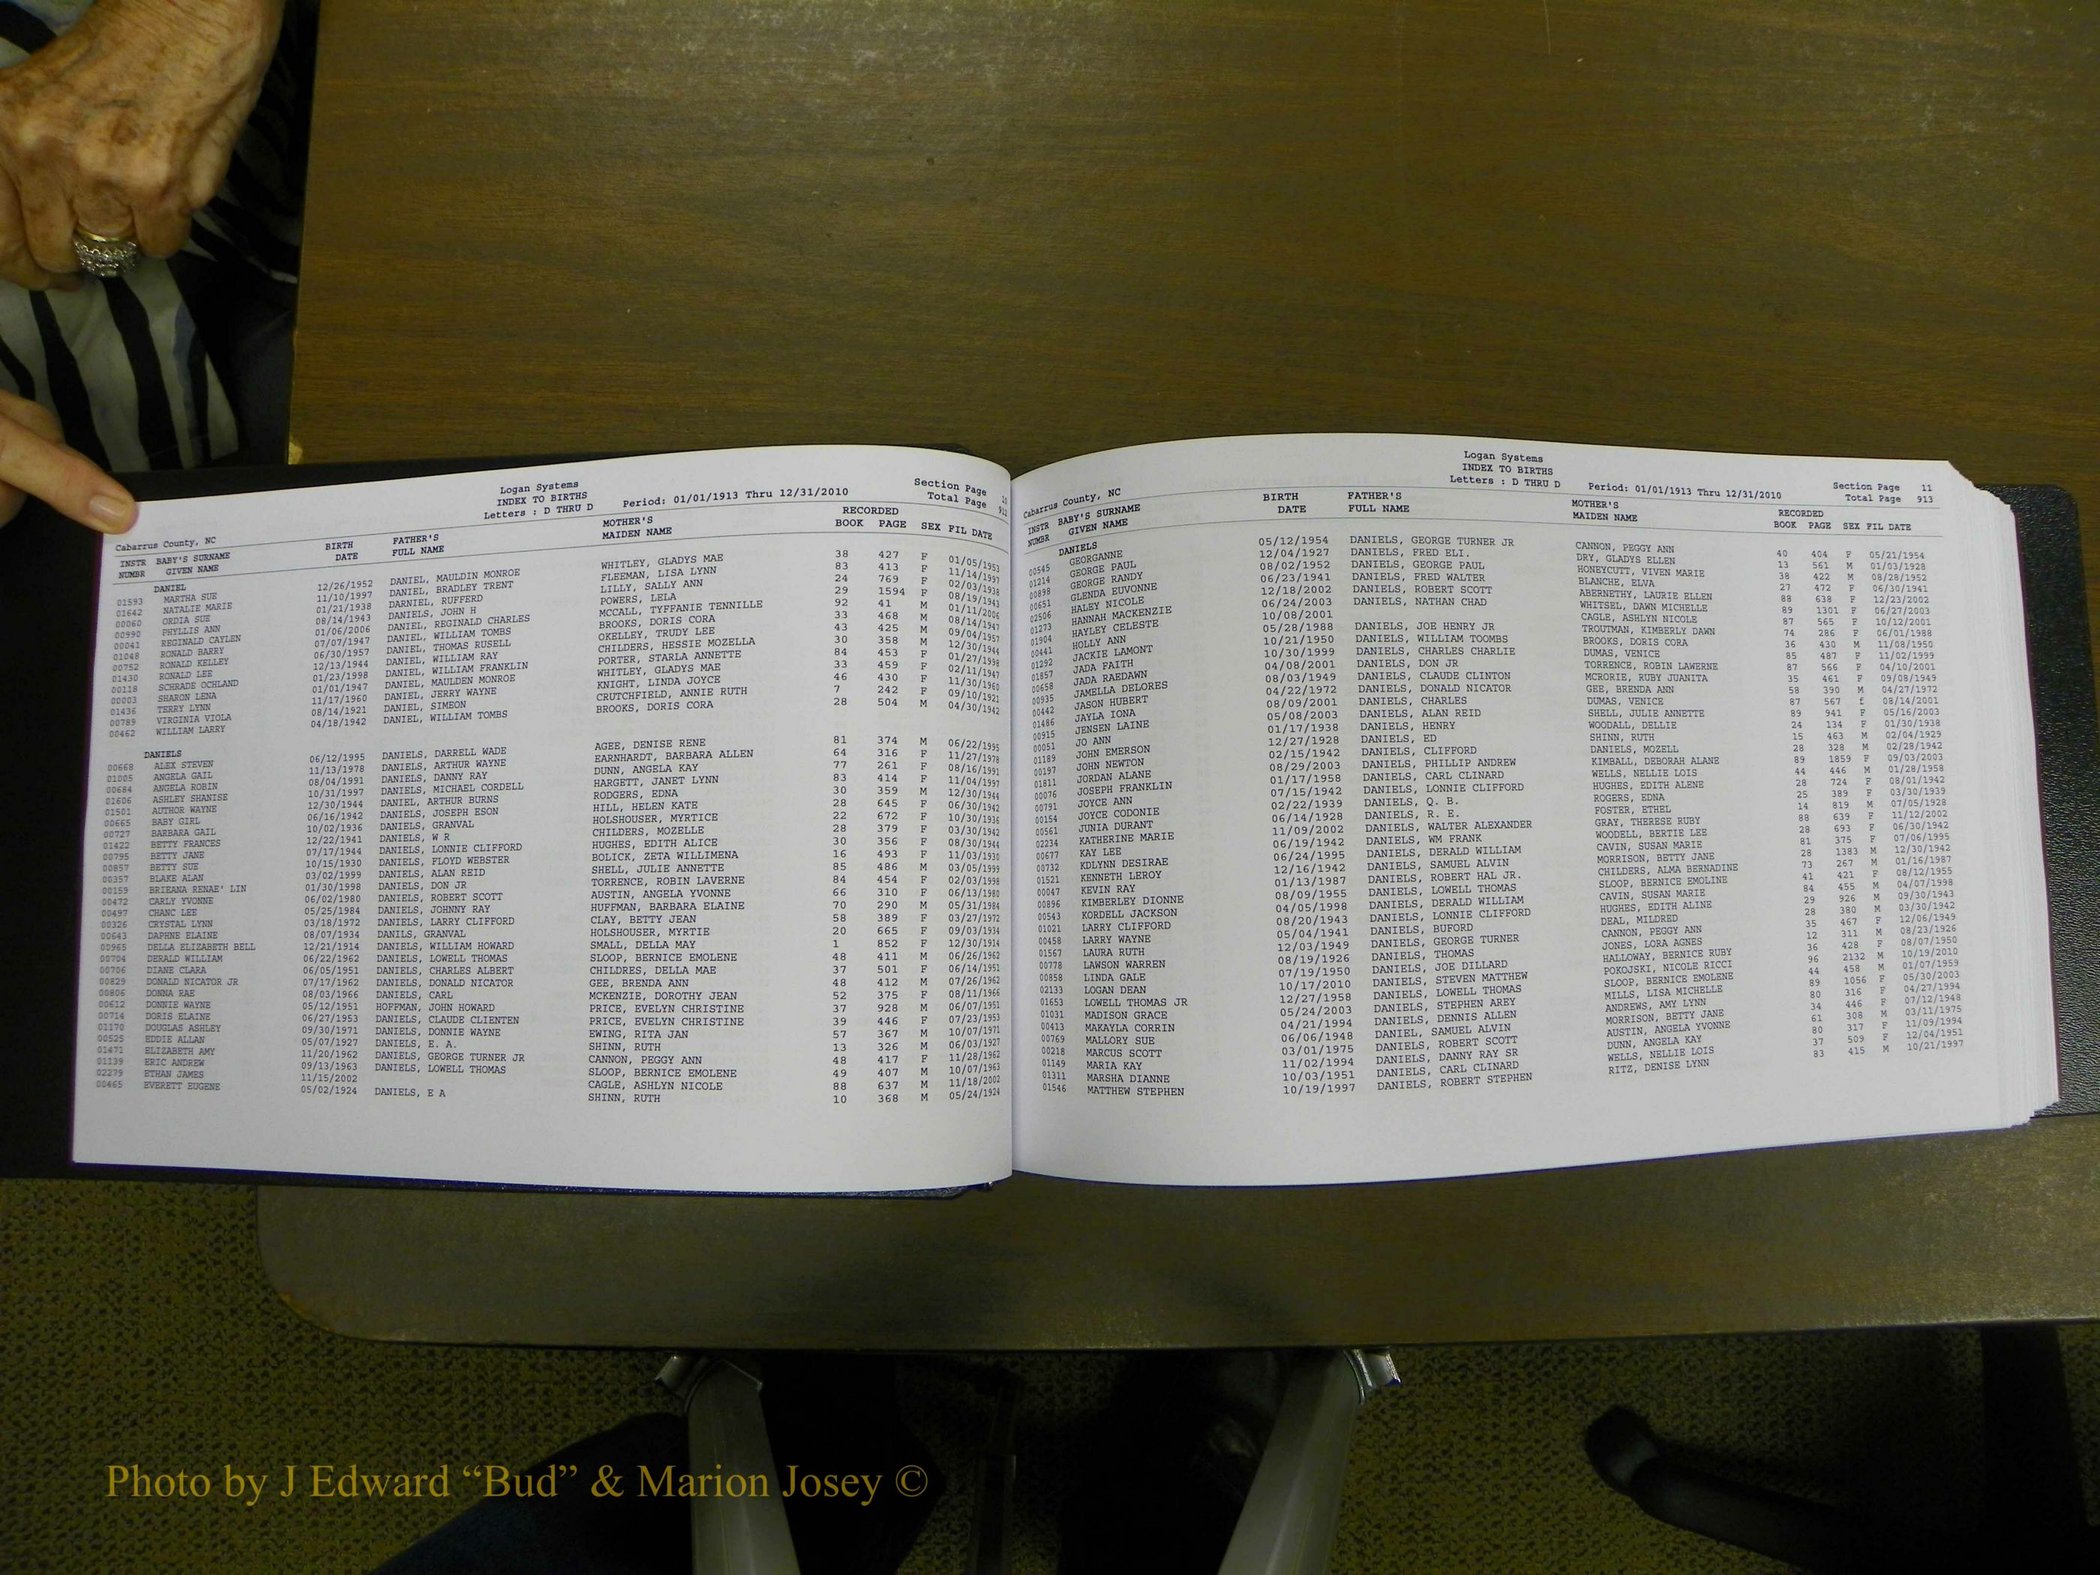 Logan Systems
INDEX TO BIRTHS
Letters : D THRU D
Period: 01/01/1913 Thru 12/31/2010
Section Page 10
Total Page 912
Cabarrus County, NC
INSTR BABY'S SURNAME BIRTH FATHER'S MOTHER'S RECORDED
NUMBR GIVEN NAME DATE FULL NAME MAIDEN NAME BOOK PAGE SEX FIL DATE
DANIEL
01593 MARTHA SUE 12/26/1952 DANIEL, MAULDIN MONROE WHITLEY, GLADYS MAE 38 427 F 01/05/1953
01642 NATALIE MARIE 11/10/1997 DANIEL, BRADLEY TRENT FLEEMAN, LISA LYNN 83 413 F 11/14/1997
00060 ORDIA SUE 01/21/1938 DARNIEL, RUFFERD LILLY, SALLY ANN 24 769 F 02/03/1938
00990 PHYLLIS ANN 08/14/1943 DANIELS, JOHN H POWERS, LELA 29 1594 F 08/19/1943
00041 REGINALD CAYLEN 01/06/2006 DANIEL, REGINALD CHARLES MCCALL, TYFFANIE TENNILLE 92 41 M 01/11/2006
01048 RONALD BARRY 07/07/1947 DANIEL, WILLIAM TOMBS BROOKS, DORIS CORA 33 468 M 08/14/1947
00752 RONALD KELLEY 06/30/1957 DANIEL, THOMAS RUSELL OKELLEY, TRUDY LEE 43 425 M 09/04/1957
01430 RONALD LEE 12/13/1944 DANIEL, WILLIAM RAY CHILDERS, HESSIE MOZELLA 30 358 M 12/30/1944
00118 SCHRADE OCHLAND 01/23/1998 DANIEL, WILLIAM FRANKLIN PORTER, STARLA ANNETTE 84 453 F 01/27/1998
00003 SHARON LENA 01/01/1947 DANIEL, MAULDEN MONROE WHITLEY, GLADYS MAE 33 459 F 02/11/1947
01436 TERRY LYNN 11/17/1960 DANIEL, JERRY WAYNE KNIGHT, LINDA JOYCE 46 430 F 11/30/1960
00789 VIRGINIA VIOLA 08/14/1921 DANIEL, SIMEON CRUTCHFIELD, ANNIE RUTH 7 242 F 09/10/1921
00462 WILLIAM LARRY 04/18/1942 DANIEL, WILLIAM TOMBS BROOKS, DORIS CORA 28 504 M 04/30/1942
DANIELS
00668 ALEX STEVEN 06/12/1995 DANIELS, DARRELL WADE AGEE, DENISE RENE 81 374 M 06/22/1995
01005 ANGELA GAIL 11/13/1978 DANIELS, ARTHUR WAYNE EARNHARDT, BARBARA ALLEN 64 316 F 11/27/1978
00684 ANGELA ROBIN 08/04/1991 DANIELS, DANNY RAY DUNN, ANGELA KAY 77 261 F 08/16/1991
01606 ASHLEY SHANISE 10/31/1997 DANIELS, MICHAEL CORDELL HARGETT, JANET LYNN 83 414 F 11/04/1997
01501 AUTHOR WAYNE 12/30/1944 DANIEL, ARTHUR BURNS RODGERS, EDNA 30 359 M 12/30/1944
00665 BABY GIRL 06/16/1942 DANIELS, JOSEPH ESON HILL, HELEN KATE 28 645 F 06/30/1942
00727 BARBARA GAIL 10/02/1936 DANIELS, GRANVAL HOLSHOUSER, MYRTICE 22 672 F 10/30/1936
01422 BETTY FRANCES 12/22/1941 DANIELS, W R CHILDERS, MOZELLE 28 379 F 03/30/1942
00795 BETTY JANE 07/17/1944 DANIELS, LONNIE CLIFFORD HUGHES, EDITH ALICE 30 356 F 08/30/1944
00857 BETTY SUE 10/15/1930 DANIELS, FLOYD WEBSTER BOLICK, ZETA WILLIMENA 16 493 F 11/03/1930
00357 BLAKE ALAN 03/02/1999 DANIELS, ALAN REID SHELL, JULIE ANNETTE 85 486 M 03/05/1999
00159 BRIEANA RENAE' LIN 01/30/1998 DANIELS, DON JR TORRENCE, ROBIN LAVERNE 84 454 F 02/03/1998
00472 CARLY YVONNE 06/02/1980 DANIELS, ROBERT SCOTT AUSTIN, ANGELA YVONNE 66 310 F 06/13/1980
00497 CHANC LEE 05/25/1984 DANIELS, JOHNNY RAY HUFFMAN, BARBARA ELAINE 70 290 M 05/31/1984
00326 CRYSTAL LYNN 03/18/1972 DANIELS, LARRY CLIFFORD CLAY, BETTY JEAN 58 389 F 03/27/1972
00643 DAPHNE ELAINE 08/07/1934 DANILS, GRANVAL HOLSHOUSER, MYRTIE 20 665 F 09/03/1934
00965 DELLA ELIZABETH BELL 12/21/1914 DANIELS, WILLIAM HOWARD SMALL, DELLA MAY 1 852 F 12/30/1914
00704 DERALD WILLIAM 06/22/1962 DANIELS, LOWELL THOMAS SLOOP, BERNICE EMOLENE 48 411 M 06/26/1962
00706 DIANE CLARA 06/05/1951 DANIELS, CHARLES ALBERT CHILDRES, DELLA MAE 37 501 F 06/14/1951
00829 DONALD NICATOR JR 07/17/1962 DANIELS, DONALD NICATOR GEE, BRENDA ANN 48 412 M 07/26/1962
00806 DONNA RAE 08/03/1966 DANIELS, CARL MCKENZIE, DOROTHY JEAN 52 375 F 08/11/1966
00612 DONNIE WAYNE 05/12/1951 HOFFMAN, JOHN HOWARD PRICE, EVELYN CHRISTINE 37 928 M 06/07/1951
00714 DORIS ELAINE 06/27/1953 DANIELS, CLAUDE CLIENTEN PRICE, EVELYN CHRISTINE 39 446 F 07/23/1953
01170 DOUGLAS ASHLEY 09/30/1971 DANIELS, DONNIE WAYNE EWING, RITA JAN 57 367 M 10/07/1971
00525 EDDIE ALLAN 05/07/1927 DANIELS, E. A. SHINN, RUTH 13 326 M 06/03/1927
01471 ELIZABETH AMY 11/20/1962 DANIELS, GEORGE TURNER JR CANNON, PEGGY ANN 48 417 F 11/28/1962
01139 ERIC ANDREW 09/13/1963 DANIELS, LOWELL THOMAS SLOOP, BERNICE EMOLENE 49 407 M 10/07/1963
02279 ETHAN JAMES 11/15/2002 CAGLE, ASHLYN NICOLE 88 637 M 11/18/2002
00465 EVERETT EUGENE 05/02/1924 DANIELS, E A SHINN, RUTH 10 368 M 05/24/1924
Logan Systems
INDEX TO BIRTHS
Letters : D THRU D
Period: 01/01/1913 Thru 12/31/2010
Section Page 11
Total Page 913
Cabarrus County, NC
INSTR BABY'S SURNAME BIRTH FATHER'S MOTHER'S RECORDED
NUMBR GIVEN NAME DATE FULL NAME MAIDEN NAME BOOK PAGE SEX FIL DATE
DANIELS
00545 GEORGANNE 05/12/1954 DANIELS, GEORGE TURNER JR CANNON, PEGGY ANN 40 404 F 05/21/1954
01214 GEORGE PAUL 12/04/1927 DANIELS, FRED ELI. DRY, GLADYS ELLEN 13 561 M 01/03/1928
00898 GEORGE RANDY 08/02/1952 DANIELS, GEORGE PAUL HONEYCUTT, VIVEN MARIE 38 422 M 08/28/1952
00651 GLENDA EUVONNE 06/23/1941 DANIELS, FRED WALTER BLANCHE, ELVA 27 472 F 06/30/1941
02506 HALEY NICOLE 12/18/2002 DANIELS, ROBERT SCOTT ABERNETHY, LAURIE ELLEN 88 638 F 12/23/2002
01273 HANNAH MACKENZIE 06/24/2003 DANIELS, NATHAN CHAD WHITSEL, DAWN MICHELLE 89 1301 F 06/27/2003
01904 HAYLEY CELESTE 10/08/2001 CAGLE, ASHLYN NICOLE 87 565 F 10/12/2001
00441 HOLLY ANN 05/28/1988 DANIELS, JOE HENRY JR TROUTMAN, KIMBERLY DAWN 74 286 F 06/01/1988
01292 JACKIE LAMONT 10/21/1950 DANIELS, WILLIAM TOOMBS BROOKS, DORIS CORA 36 430 M 11/08/1950
01857 JADA FAITH 10/30/1999 DANIELS, CHARLES CHARLIE DUMAS, VENICE 85 487 F 11/02/1999
00658 JADA RAEDAWN 04/08/2001 DANIELS, DON JR TORRENCE, ROBIN LAWERNE 87 566 F 04/10/2001
00935 JAMELLA DELORES 08/03/1949 DANIELS, CLAUDE CLINTON MCRORIE, RUBY JUANITA 35 461 F 09/08/1949
00442 JASON HUBERT 04/22/1972 DANIELS, DONALD NICATOR GEE, BRENDA ANN 58 390 M 04/27/1972
01486 JAYLA IONA 08/09/2001 DANIELS, CHARLES DUMAS, VENICE 87 567 f 08/14/2001
00915 JENSEN LAINE 05/08/2003 DANIELS, ALAN REID SHELL, JULIE ANNETTE 89 941 F 05/16/2003
00051 JO ANN 01/17/1938 DANIELS, HENRY WOODALL, DELLIE 24 134 F 01/30/1938
01189 JOHN EMERSON 12/27/1928 DANIELS, ED SHINN, RUTH 15 463 M 02/04/1929
00197 JOHN NEWTON 02/15/1942 DANIELS, CLIFFORD DANIELS, MOZELL 28 328 M 02/28/1942
01811 JORDAN ALANE 08/29/2003 DANIELS, PHILLIP ANDREW KIMBALL, DEBORAH ALANE 89 1859 F 09/03/2003
00076 JOSEPH FRANKLIN 01/17/1958 DANIELS, CARL CLINARD WELLS, NELLIE LOIS 44 446 M 01/28/1958
00791 JOYCE ANN 07/15/1942 DANIELS, LONNIE CLIFFORD HUGHES, EDITH ALENE 28 724 F 08/01/1942
00154 JOYCE CODONIE 02/22/1939 DANIELS, Q. B. ROGERS, EDNA 25 389 F 03/30/1939
00561 JUNIA DURANT 06/14/1928 DANIELS, R. E. FOSTER, ETHEL 14 819 M 07/05/1928
02234 KATHERINE MARIE 11/09/2002 DANIELS, WALTER ALEXANDER GRAY, THERESE RUBY 88 639 F 11/12/2002
00677 KAY LEE 06/19/1942 DANIELS, WM FRANK WOODELL, BERTIE LEE 28 693 F 06/30/1942
00732 KDLYNN DESIRAE 06/24/1995 DANIELS, DERALD WILLIAM CAVIN, SUSAN MARIE 81 375 F 07/06/1995
01521 KENNETH LEROY 12/16/1942 DANIELS, SAMUEL ALVIN MORRISON, BETTY JANE 28 1383 M 12/30/1942
00047 KEVIN RAY 01/13/1987 DANIELS, ROBERT HAL JR. CHILDERS, ALMA BERNADINE 73 267 M 01/16/1987
00896 KIMBERLEY DIONNE 08/09/1955 DANIELS, LOWELL THOMAS SLOOP, BERNICE EMOLINE 41 421 F 08/12/1955
00543 KORDELL JACKSON 04/05/1998 DANIELS, DERALD WILLIAM CAVIN, SUSAN MARIE 84 455 M 04/07/1998
01021 LARRY CLIFFORD 08/20/1943 DANIELS, LONNIE CLIFFORD HUGHES, EDITH ALINE 29 926 M 09/30/1943
00458 LARRY WAYNE 05/04/1941 DANIELS, BUFORD DEAL, MILDRED 28 380 M 03/30/1942
01567 LAURA RUTH 12/03/1949 DANIELS, GEORGE TURNER CANNON, PEGGY ANN 35 467 F 12/06/1949
00778 LAWSON WARREN 08/19/1926 DANIELS, THOMAS JONES, LORA AGNES 12 311 M 08/23/1926
00858 LINDA GALE 07/19/1950 DANIELS, JOE DILLARD HALLOWAY, BERNICE RUBY 36 428 F 08/07/1950
02133 LOGAN DEAN 10/17/2010 DANIELS, STEVEN MATTHEW POKOJSKI, NICOLE RICCI 96 2132 M 10/19/2010
01653 LOWELL THOMAS JR 12/27/1958 DANIELS, LOWELL THOMAS SLOOP, BERNICE EMOLENE 44 458 M 01/07/1959
01031 MADISON GRACE 05/24/2003 DANIELS, STEPHEN AREY MILLS, LISA MICHELLE 89 1056 F 05/30/2003
00413 MAKAYLA CORRIN 04/21/1994 DANIELS, DENNIS ALLEN ANDREWS, AMY LYNN 80 316 F 04/27/1994
00769 MALLORY SUE 06/06/1948 DANIEL, SAMUEL ALVIN MORRISON, BETTY JANE 34 446 F 07/12/1948
00218 MARCUS SCOTT 03/01/1975 DANIELS, ROBERT SCOTT AUSTIN, ANGELA YVONNE 61 308 M 03/11/1975
01149 MARIA KAY 11/02/1994 DANIELS, DANNY RAY SR DUNN, ANGELA KAY 80 317 F 11/09/1994
01311 MARSHA DIANNE 10/03/1951 DANIELS, CARL CLINARD WELLS, NELLIE LOIS 37 509 F 12/04/1951
01546 MATTHEW STEPHEN 10/19/1997 DANIELS, ROBERT STEPHEN RITZ, DENISE LYNN 83 415 M 10/21/1997
Photo by J Edward “Bud” & Marion Josey ©